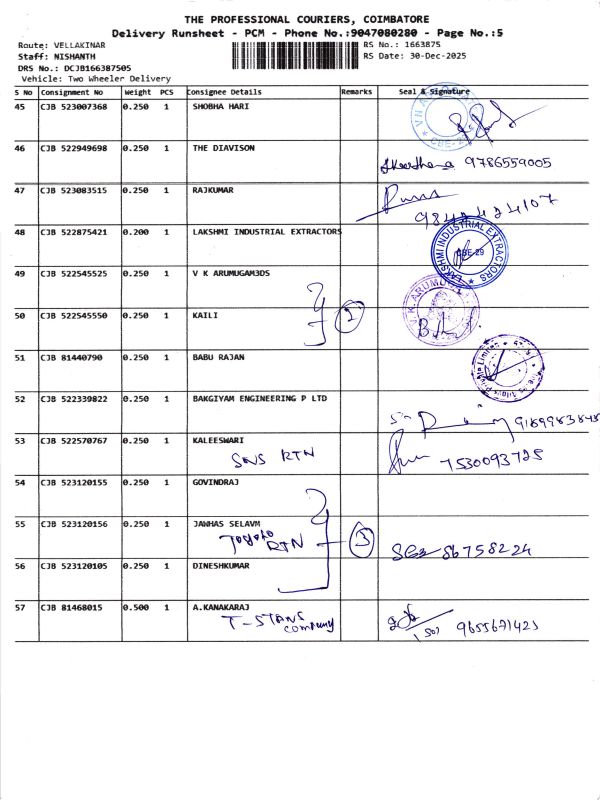 THE PROFESSIONAL COURIERS, COIMBATORE
Delivery Runsheet - PCM - Phone No.:9047080280 - Page No.:5
Route: VELLAKINAR RS No.: 1663875
Staff: NISHANTH RS Date: 30-Dec-2025
DRS No.: DCJB166387505
Vehicle: Two Wheeler Delivery
S No Consignment No Weight PCS Consignee Details Remarks Seal & Signature
45 CJB 523007368 0.250 1 SHOBHA HARI
CBE-29
46 CJB 522949698 0.250 1 THE DIAVISON
9786559005
47 CJB 523083515 0.250 1 RAJKUMAR
9842424107
48 CJB 522875421 0.200 1 LAKSHMI INDUSTRIAL EXTRACTORS
LAKSHMI INDUSTRIAL EXTRACTORS
CBE-29
49 CJB 522545525 0.250 1 V K ARUMUGAM3DS
50 CJB 522545550 0.250 1 KAILI
2
51 CJB 81440790 0.250 1 BABU RAJAN
52 CJB 522339822 0.250 1 BAKGIYAM ENGINEERING P LTD
53 CJB 522570767 0.250 1 KALEESWARI
SNS RTN
7530093725
54 CJB 523120155 0.250 1 GOVINDRAJ
55 CJB 523120156 0.250 1 JAWHAS SELAVM
RTN 3
56 CJB 523120105 0.250 1 DINESHKUMAR
57 CJB 81468015 0.500 1 A.KANAKARAJ
T-STANS
company
9655671421